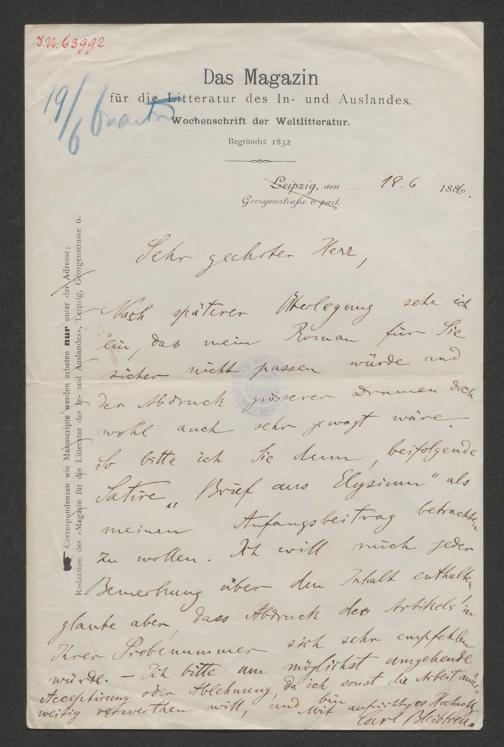 I.N. 63992
Das Magazin
für die Litteratur des In- und Auslandes.
Wochenschrift der Weltlitteratur.
Begründet 1832
19/6
Leipzig, den 18. 6 1886.
Georgenstraße 6 part.
Correspondenzen wie Manuscripte werden erbeten nur unter der Adresse:
Redaction des »Magazin für die Litteratur des In- und Auslandes«, Leipzig, Georgenstrasse 6.
Sehr geehrter Herr,
Nach späterer Überlegung sehe ich
ein, das mein Roman für Sie
sicher nicht passen würde und
der Abdruck grösserer Dramen doch
wohl auch sehr gewagt wäre.
So bitte ich Sie denn, beifolgende
Satire „Brief aus Elysium" als
meinen Anfangsbeitrag betrachten
zu wollen. Ich will mich jeder
Bemerkung über den Inhalt enthalten,
glaube aber, dass Abdruck des Artikels in
Ihrer Probenummer sich sehr empfehlen
würde. — Ich bitte um möglichst umgehende
Acceptirung oder Ablehnung, da ich sonst die Arbeit ander-
weitig verwerthen will, und bin
Mit aufrichtiger Hochacht.
Carl Bleibtreu